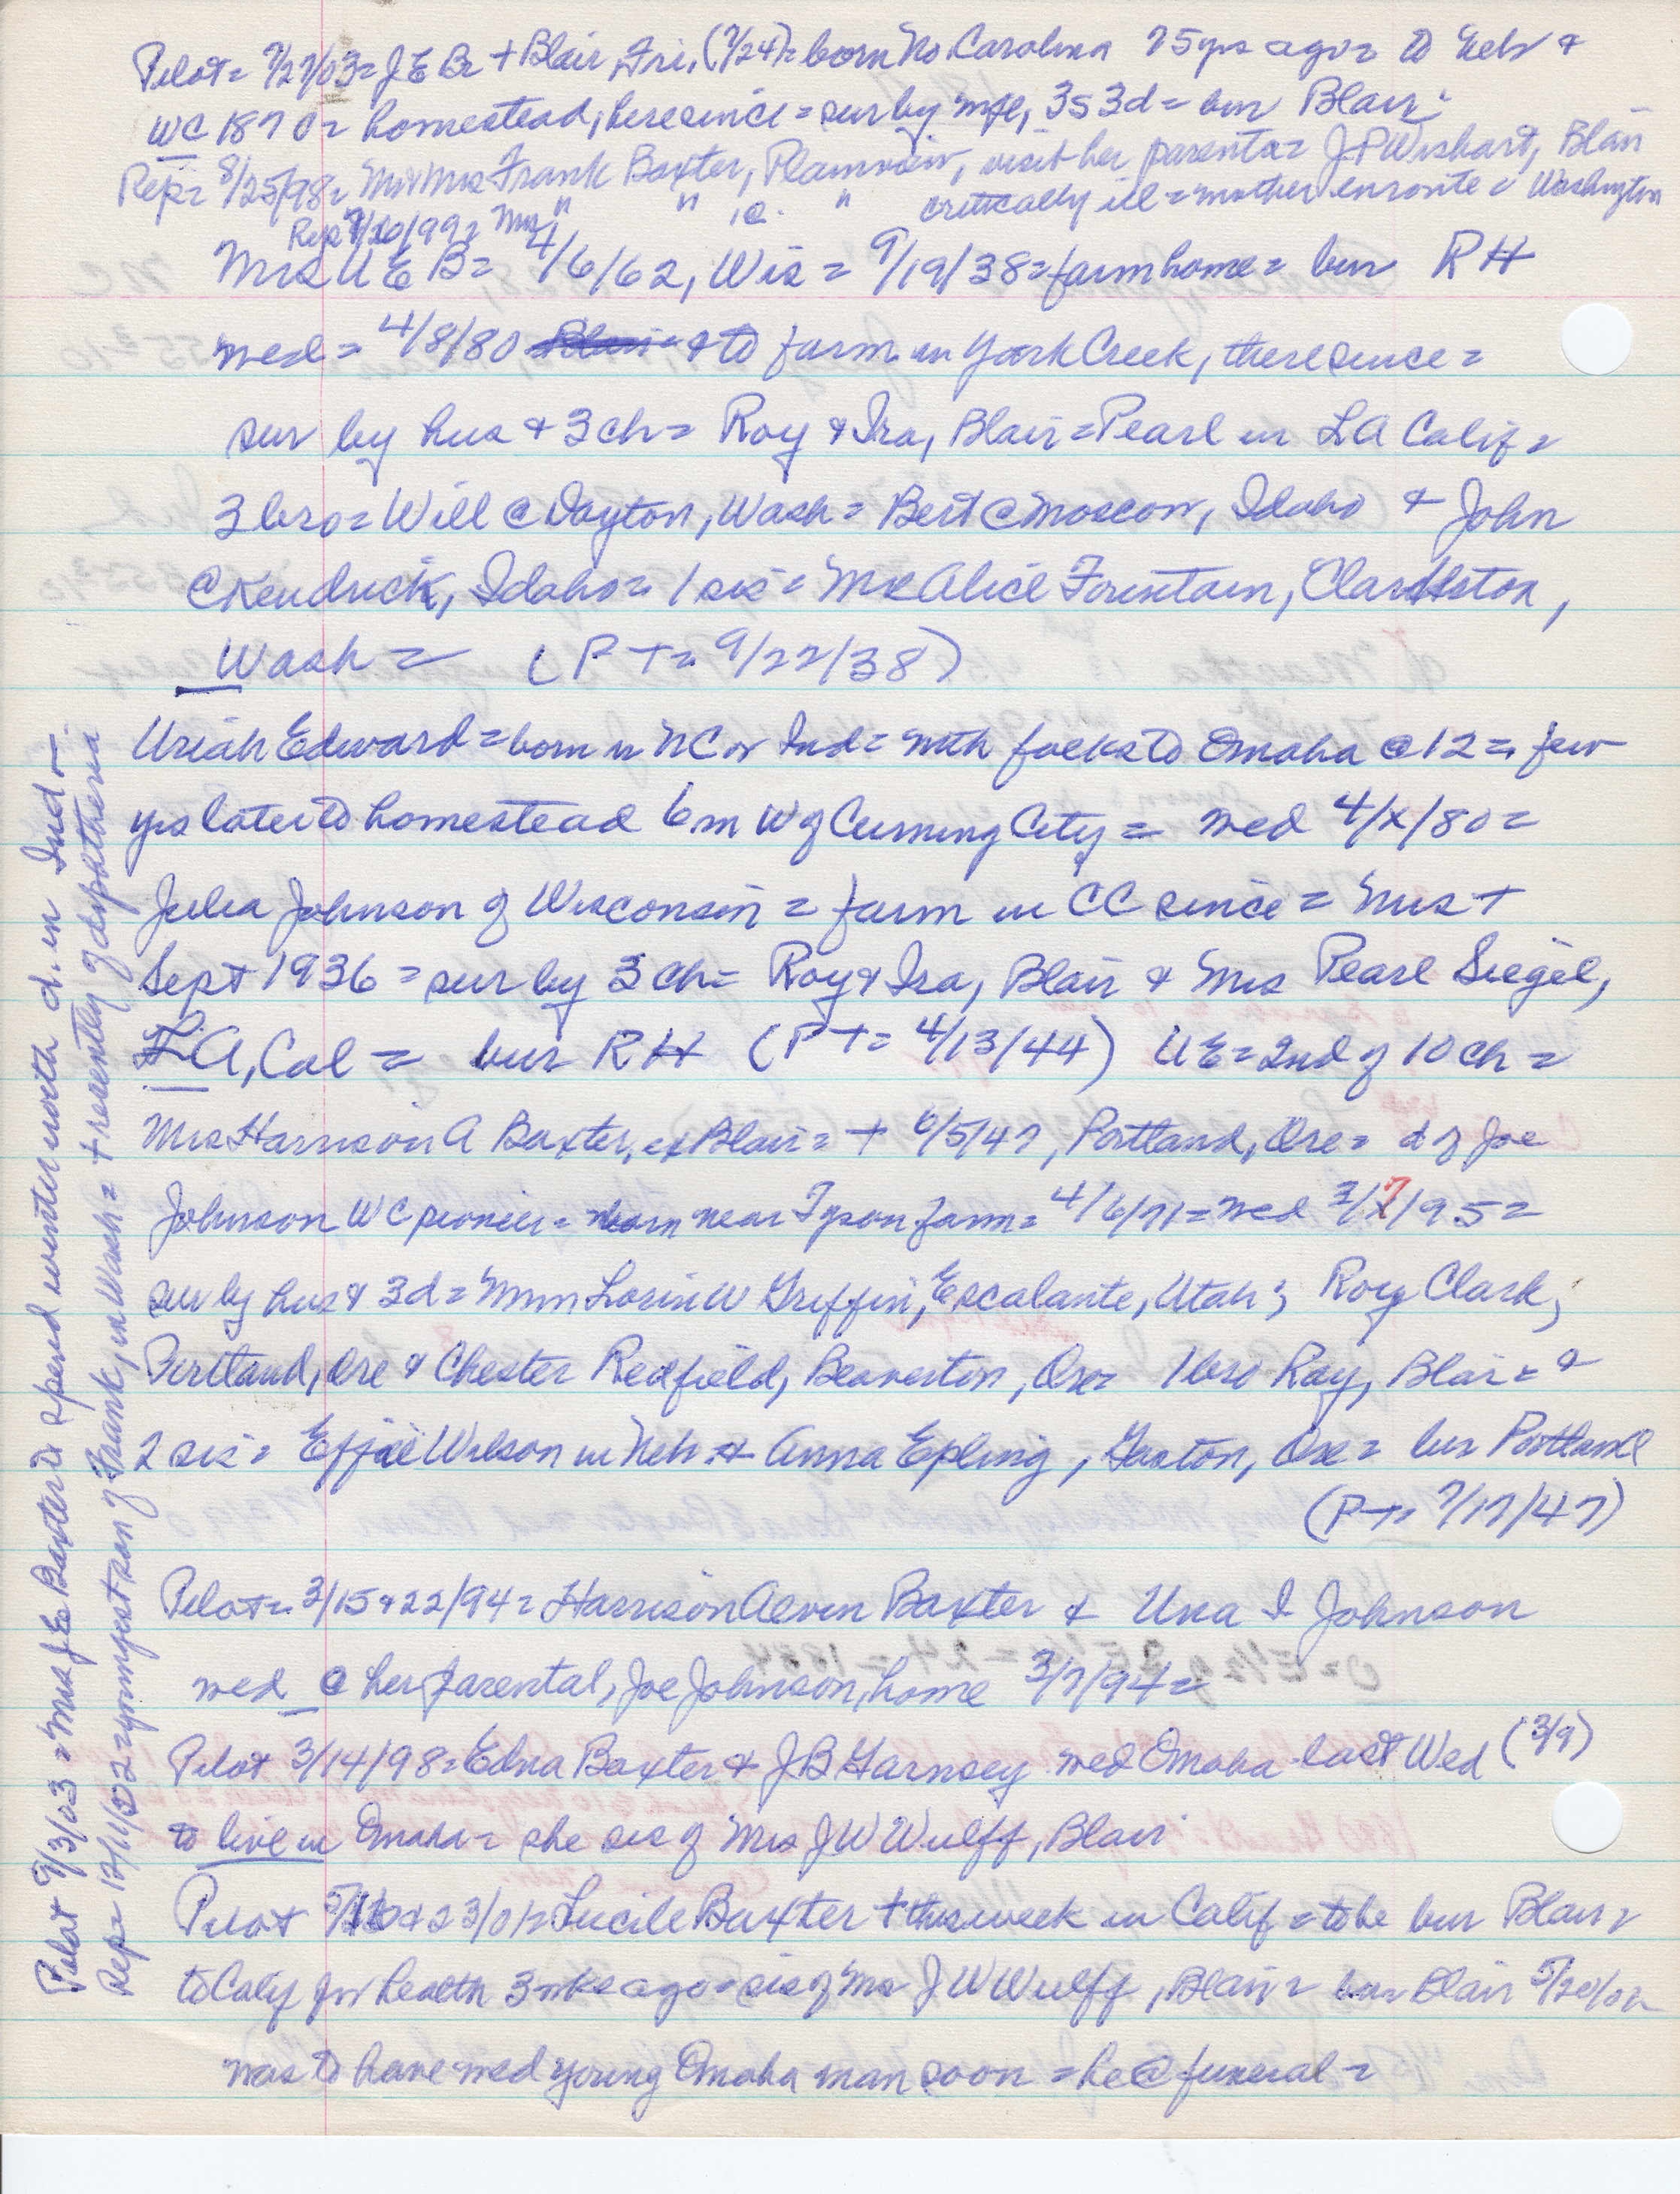 Pilot = 7/27/03 = J E B + Blair, Fri, (7/24) = born No Carolina 75 yrs ago = to Neb &
WC 1870 = homestead, here since = sur by wife, 3s 3d = bur Blair
Rep = 8/25/98 = Mr & Mrs Frank Baxter, Plainview, visit her parents = J P Wishart, Blair
Rep 9/20/99 = Mrs " " " critically ill = mother enroute = Washington
Mrs U E B = 4/6/62, Wis = 9/19/38 = farm home = bur RH
wed = 4/8/80 & to farm in York Creek, there since =
sur by hus & 3 ch = Roy & Ira, Blair = Pearl in LA Calif =
3 bro = Will @ Dayton, Wash = Bert @ Moscow, Idaho & John
@ Kendrick, Idaho = 1 sis = Mrs Alice Fountain, Clarkston,
Wash = (P T = 9/22/38)
Uriah Edward = born in NC or Ind = with folks to Omaha @ 12 = few
yrs later to homestead 6m W of Cuming City = wed 4/x/80 =
Julia Johnson of Wisconsin = farm in CC since = Mrs +
Sept 1936 = sur by 3 ch = Roy & Ira, Blair & Mrs Pearl Siegel,
LA, Cal = bur RH (P T = 4/13/44) UE = 2nd of 10 ch =
Mrs Harrison A Baxter, ex Blair = + 6/5/47, Portland, Ore = d of Joe
Johnson WC pioneer = born near Tyson farm = 4/6/71 = wed 3/7/95 =
sur by hus & 3d = Mmm Lorin W Griffin, Escalante, Utah; Roy Clark,
Portland, Ore & Chester Redfield, Beaverton, Ore = 1 bro Ray, Blair = &
2 sis = Effie Wilson in Neb & Anna Epling, Gaston, Ore = bur Portland
(P T = 7/17/47)
Pilot = 3/15 & 22/94 = Harrison Alvin Baxter & Una I Johnson
wed @ her parental, Joe Johnson, home 3/7/94 =
Pilot 3/14/98 = Edna Baxter & J B Garnsey wed Omaha last Wed (3/9)
to live in Omaha = she sis of Mrs J W Wulff, Blair
Pilot & 23/01 = Lucile Baxter + this week in Calif = to be bur Blair =
to Calif for health 3 wks ago = sis of Mrs J W Wulff, Blair = bur Blair
was to have wed young Omaha man soon = he @ funeral =
Pilot 9/3/03 = Mrs J E Baxter to spend winter with d. in Ind =
Rep = 12/11/02 = youngest son of Frank, in Wash = + recently of diphtheria